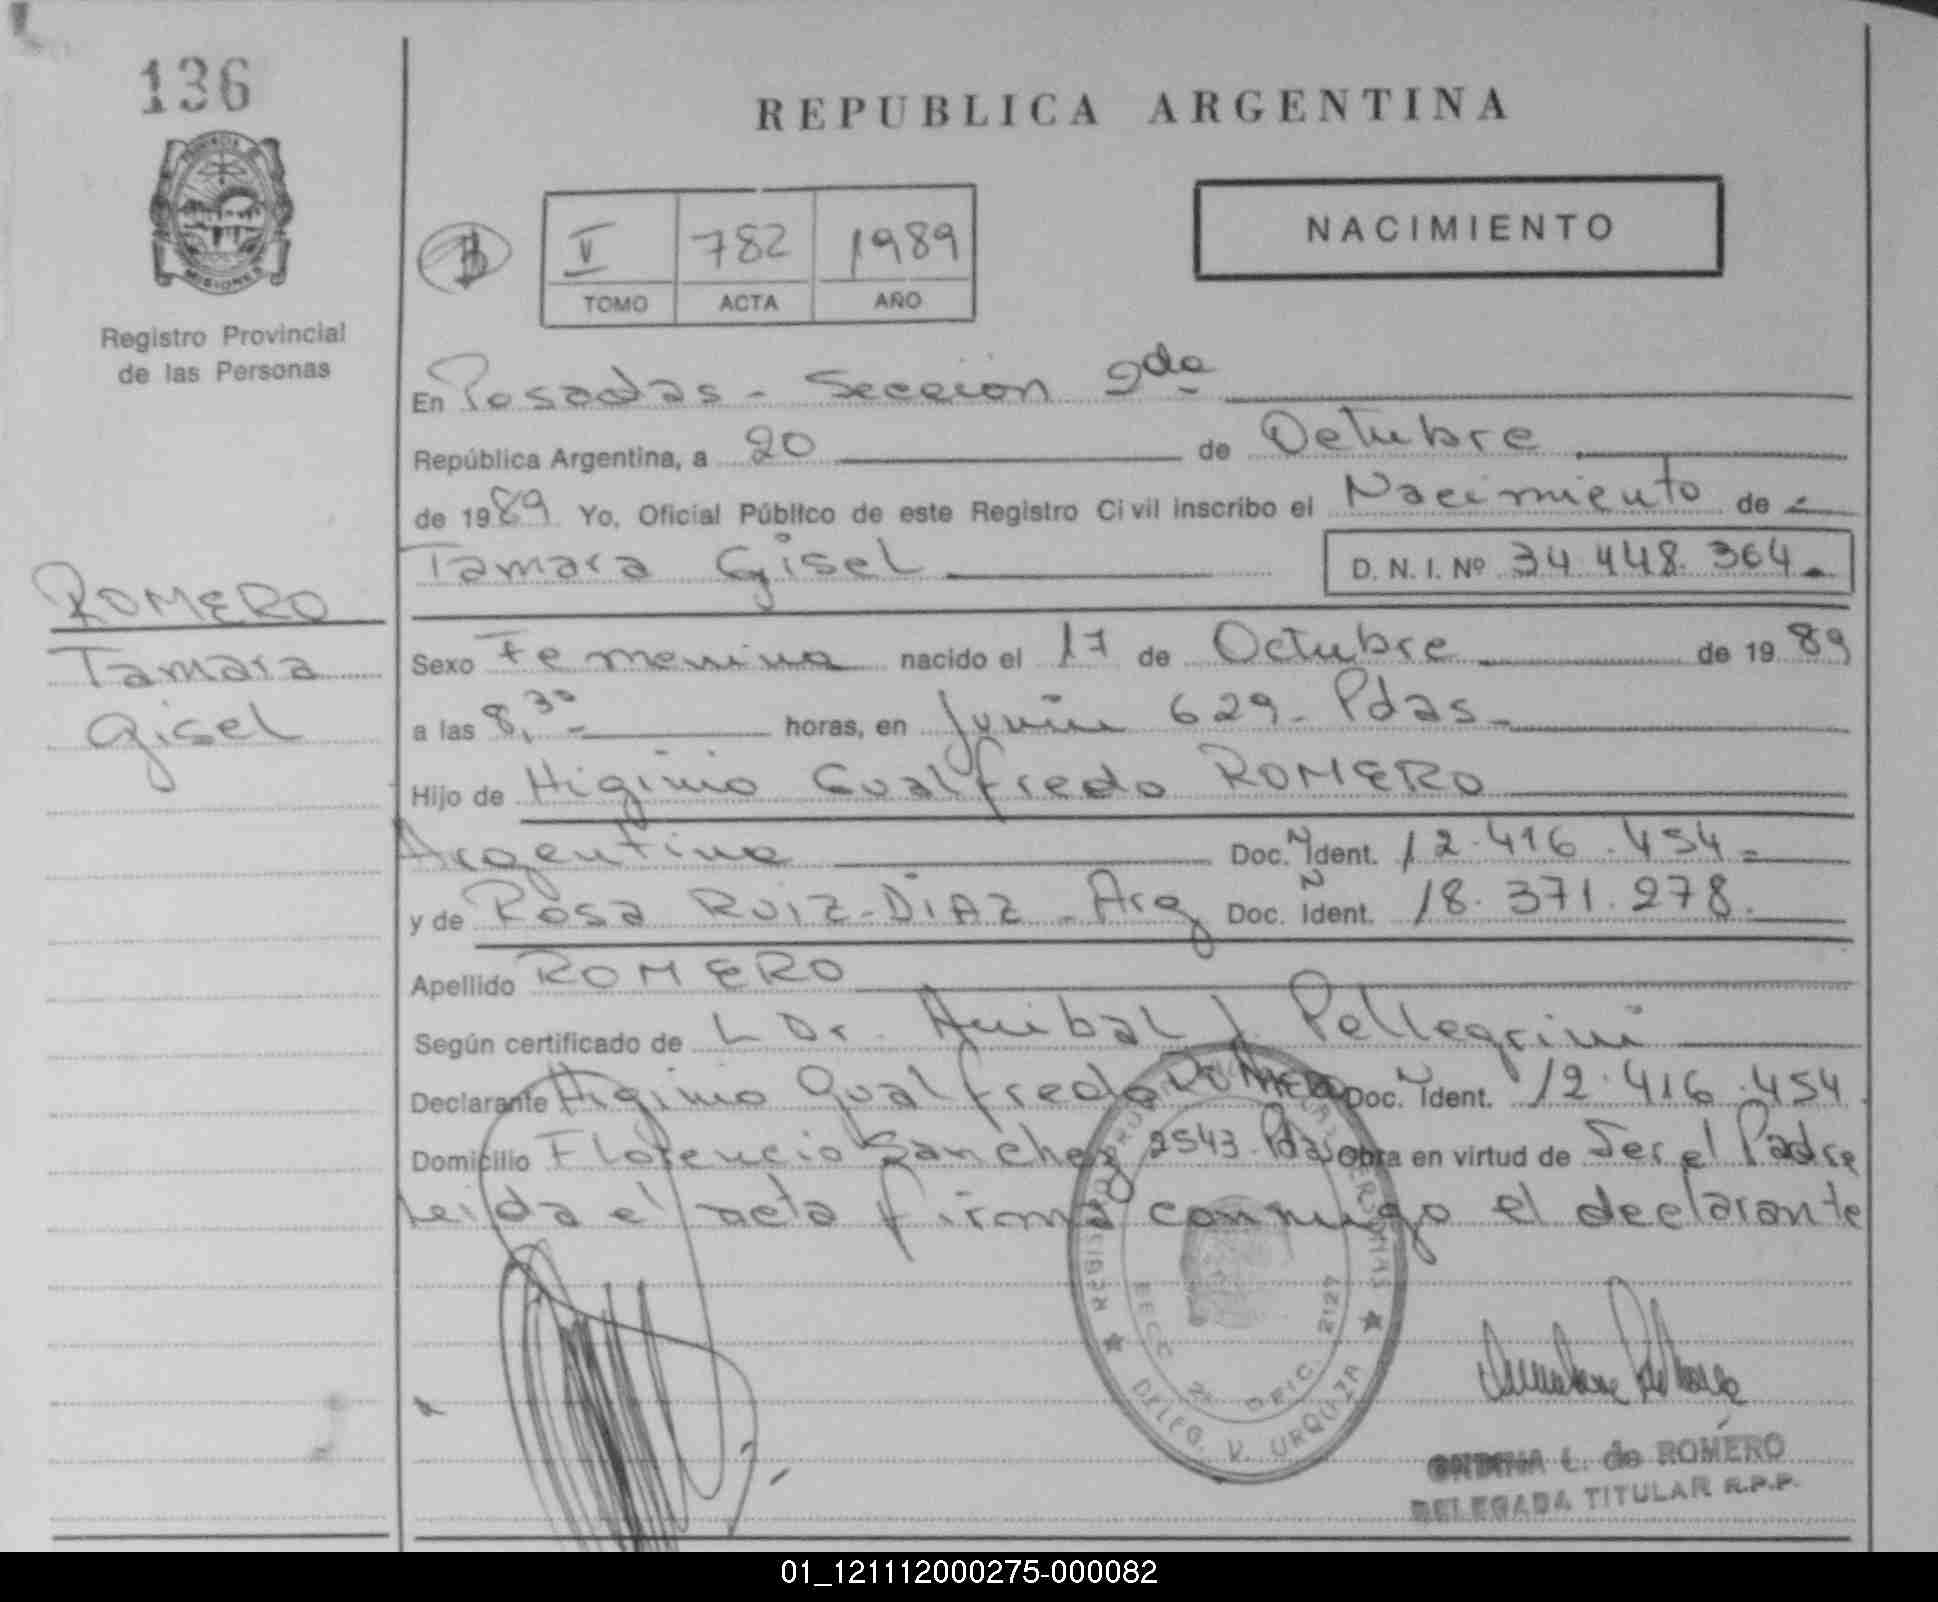 136
REPUBLICA ARGENTINA
PROVINCIA DE
MISIONES
Registro Provincial
de las Personas
NACIMIENTO
V 782 1989
TOMO ACTA AÑO
En Posadas - Seccion 2da
República Argentina, a 20 de Octubre
de 1989 Yo, Oficial Público de este Registro Civil inscribo el Nacimiento de
Tamara Gisel D. N. I. Nº 34.448.364.-
ROMERO
Tamara
Gisel
Sexo Femenino nacido el 17 de Octubre de 1989
a las 8,30 horas, en Junin 629 - Pdas -
Hijo de Higinio Gualfredo ROMERO
Argentino Doc. N Ident. 12.416.454 -
y de Rosa RUIZ-DIAZ - Arg Doc. Ñ Ident. 18.371.278.
Apellido ROMERO
Según certificado de L Dr. Anibal J. Pellegrini
Declarante Higinio Gualfredo ROMERO Doc. N Ident. 12.416.454.
Domicilio Florencio Sanchez 2543 - Pdas Obra en virtud de Ser el Padre
Leida el acta firma conmigo el declarante
SECC. 2ª OFIC. 2127
DELEG. V. URQUIZA
ONDINA L. de ROMERO
DELEGADA TITULAR R.P.P.
01_121112000275-000082